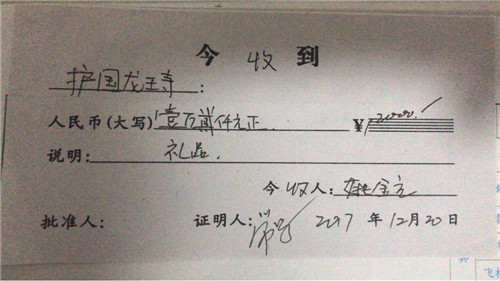 今 收 到
护国龙王寺:
人民币(大写) 壹万贰仟元正 ¥
说明:
今收人:
批准人: 证明人: 2017 年 12月 20日